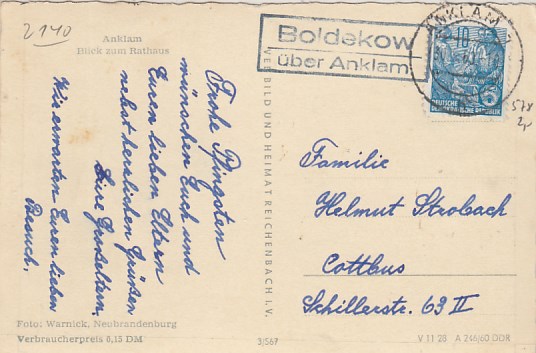 2140
Anklam
Blick zum Rathaus
Frohe Pfingsten
wünschen Euch und
Euren lieben Eltern
nebst herzlichen Grüßen
Eure Großeltern.
Wir erwarten Euren lieben
Besuch.
Foto: Warnick, Neubrandenburg
Verbraucherpreis 0,15 DM
VEB BILD UND HEIMAT REICHENBACH I. V.
3/567
Boldekow
über Anklam
ANKLAM
10
DEUTSCHE
DEMOKRATISCHE REPUBLIK
578
Familie
Helmut Strobach
Cottbus
Schillerstr. 63 II
V 11 28 A 246/60 DDR